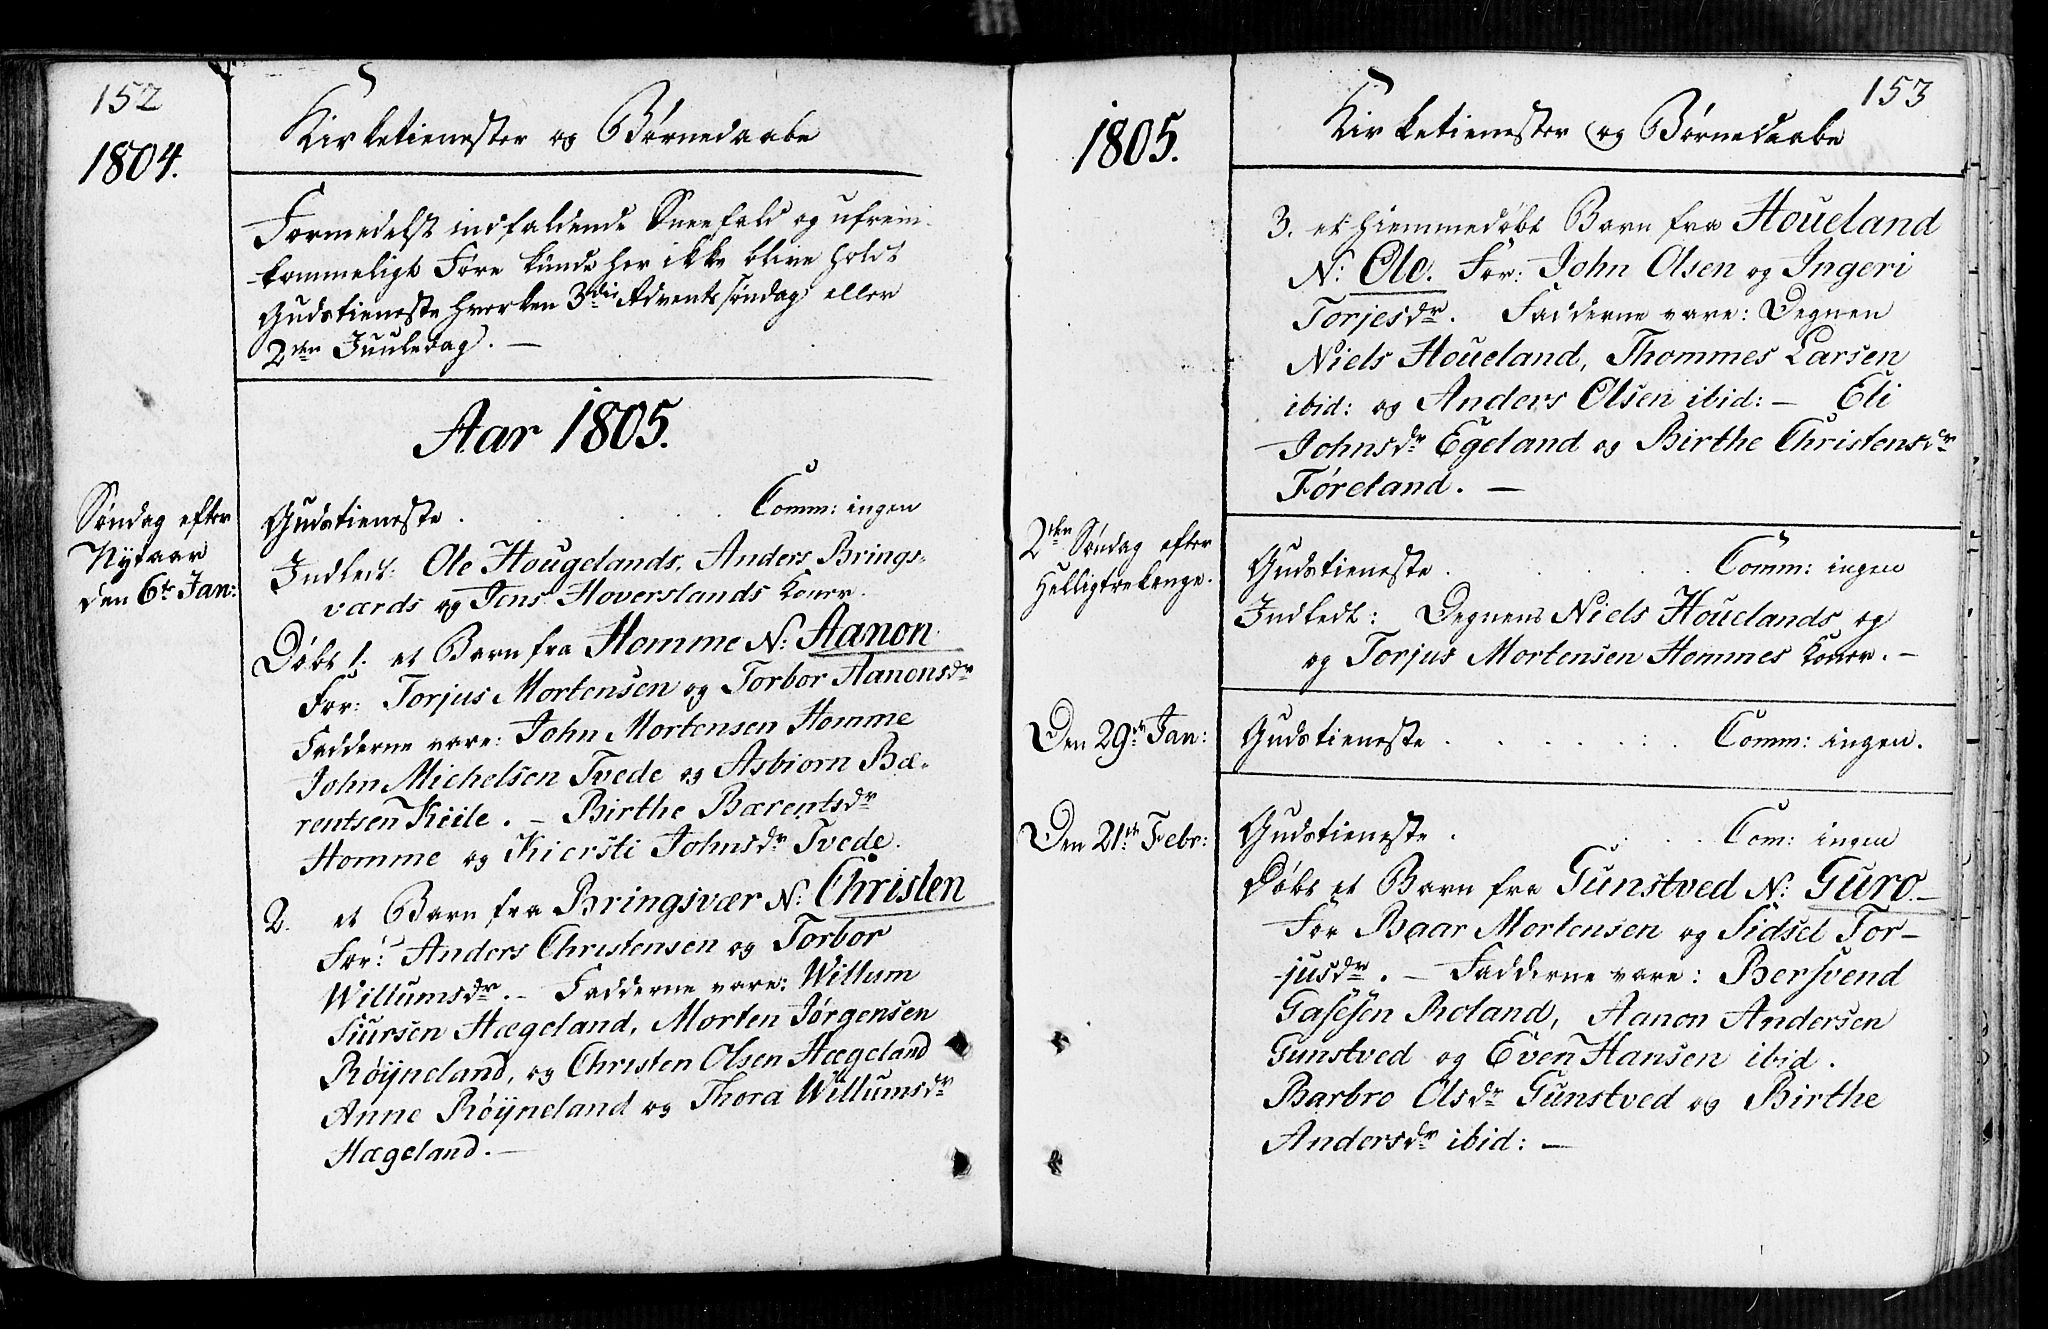 152
1804.
Kirketienester og Børnedaabe
Formedelst indfaldende Sneefald og ufrem-
kommeligt Føre kunde her ikke blive holdt
Gudstieneste hverken 3die Advents søndag eller
2den Juuledag. —
Aar 1805.
Søndag efter
Nytaar
den 6te Jan:
Gudstieneste . . . . . Comm: ingen
Indledt: Ole Hougelands, Anders Brings-
værds og Jens Hoverslands Koner.
Døbt 1. et Barn fra Homme N: Aanon.
For: Torjus Mortensen og Torbor Aanonsdr
Fadderne vare: John Mortensen Homme
John Michelsen Tvede og Asbiorn Bæ-
rentsen Kiile. — Birthe Bærentsdr
Homme og Kiersti Johnsdr Tvede.
2. et Barn fra Bringsvær N: Christen
For: Anders Christensen og Torbor
Willumsdr. — Fadderne vare: Willum
Siursen Hægeland, Morten Jørgensen
Røÿneland, og Christen Olsen Hægeland
Anne Røÿneland og Thora Willumsdr
Hægeland. —
153
1805.
Kirketienester og Børnedaabe
3. et hiemmedøbt Barn fra Houeland
N: Ole. For: John Olsen og Ingeri
Torjesdr. Fadderne vare: Degnen
Niels Houeland, Thommes Larsen
ibid: og Anders Olsen ibid: — Eli
Johnsdr Egeland og Birthe Christensdr
Føreland. —
2den Søndag efter
Helligtrekonge.
Gudstieneste . . . . . Comm: ingen
Indledt: Degnens Niels Houelands og
og Torjus Mortensen Hommes Koner. —
Den 29de Jan:
Gudstieneste . . . . . Comm: ingen.
Den 21de Febr:
Gudstieneste . . . . Com: ingen
Døbt et Barn fra Gunstved N: Guro. —
For Baar Mortensen og Sidsel Tor-
jusdr. — Fadderne vare: Bersvend
Gasesen Roland, Aanon Andersen
Gunstved og Even Hansen ibid.
Barbro Olsdr Gunstved og Birthe
Andersdr ibid: —